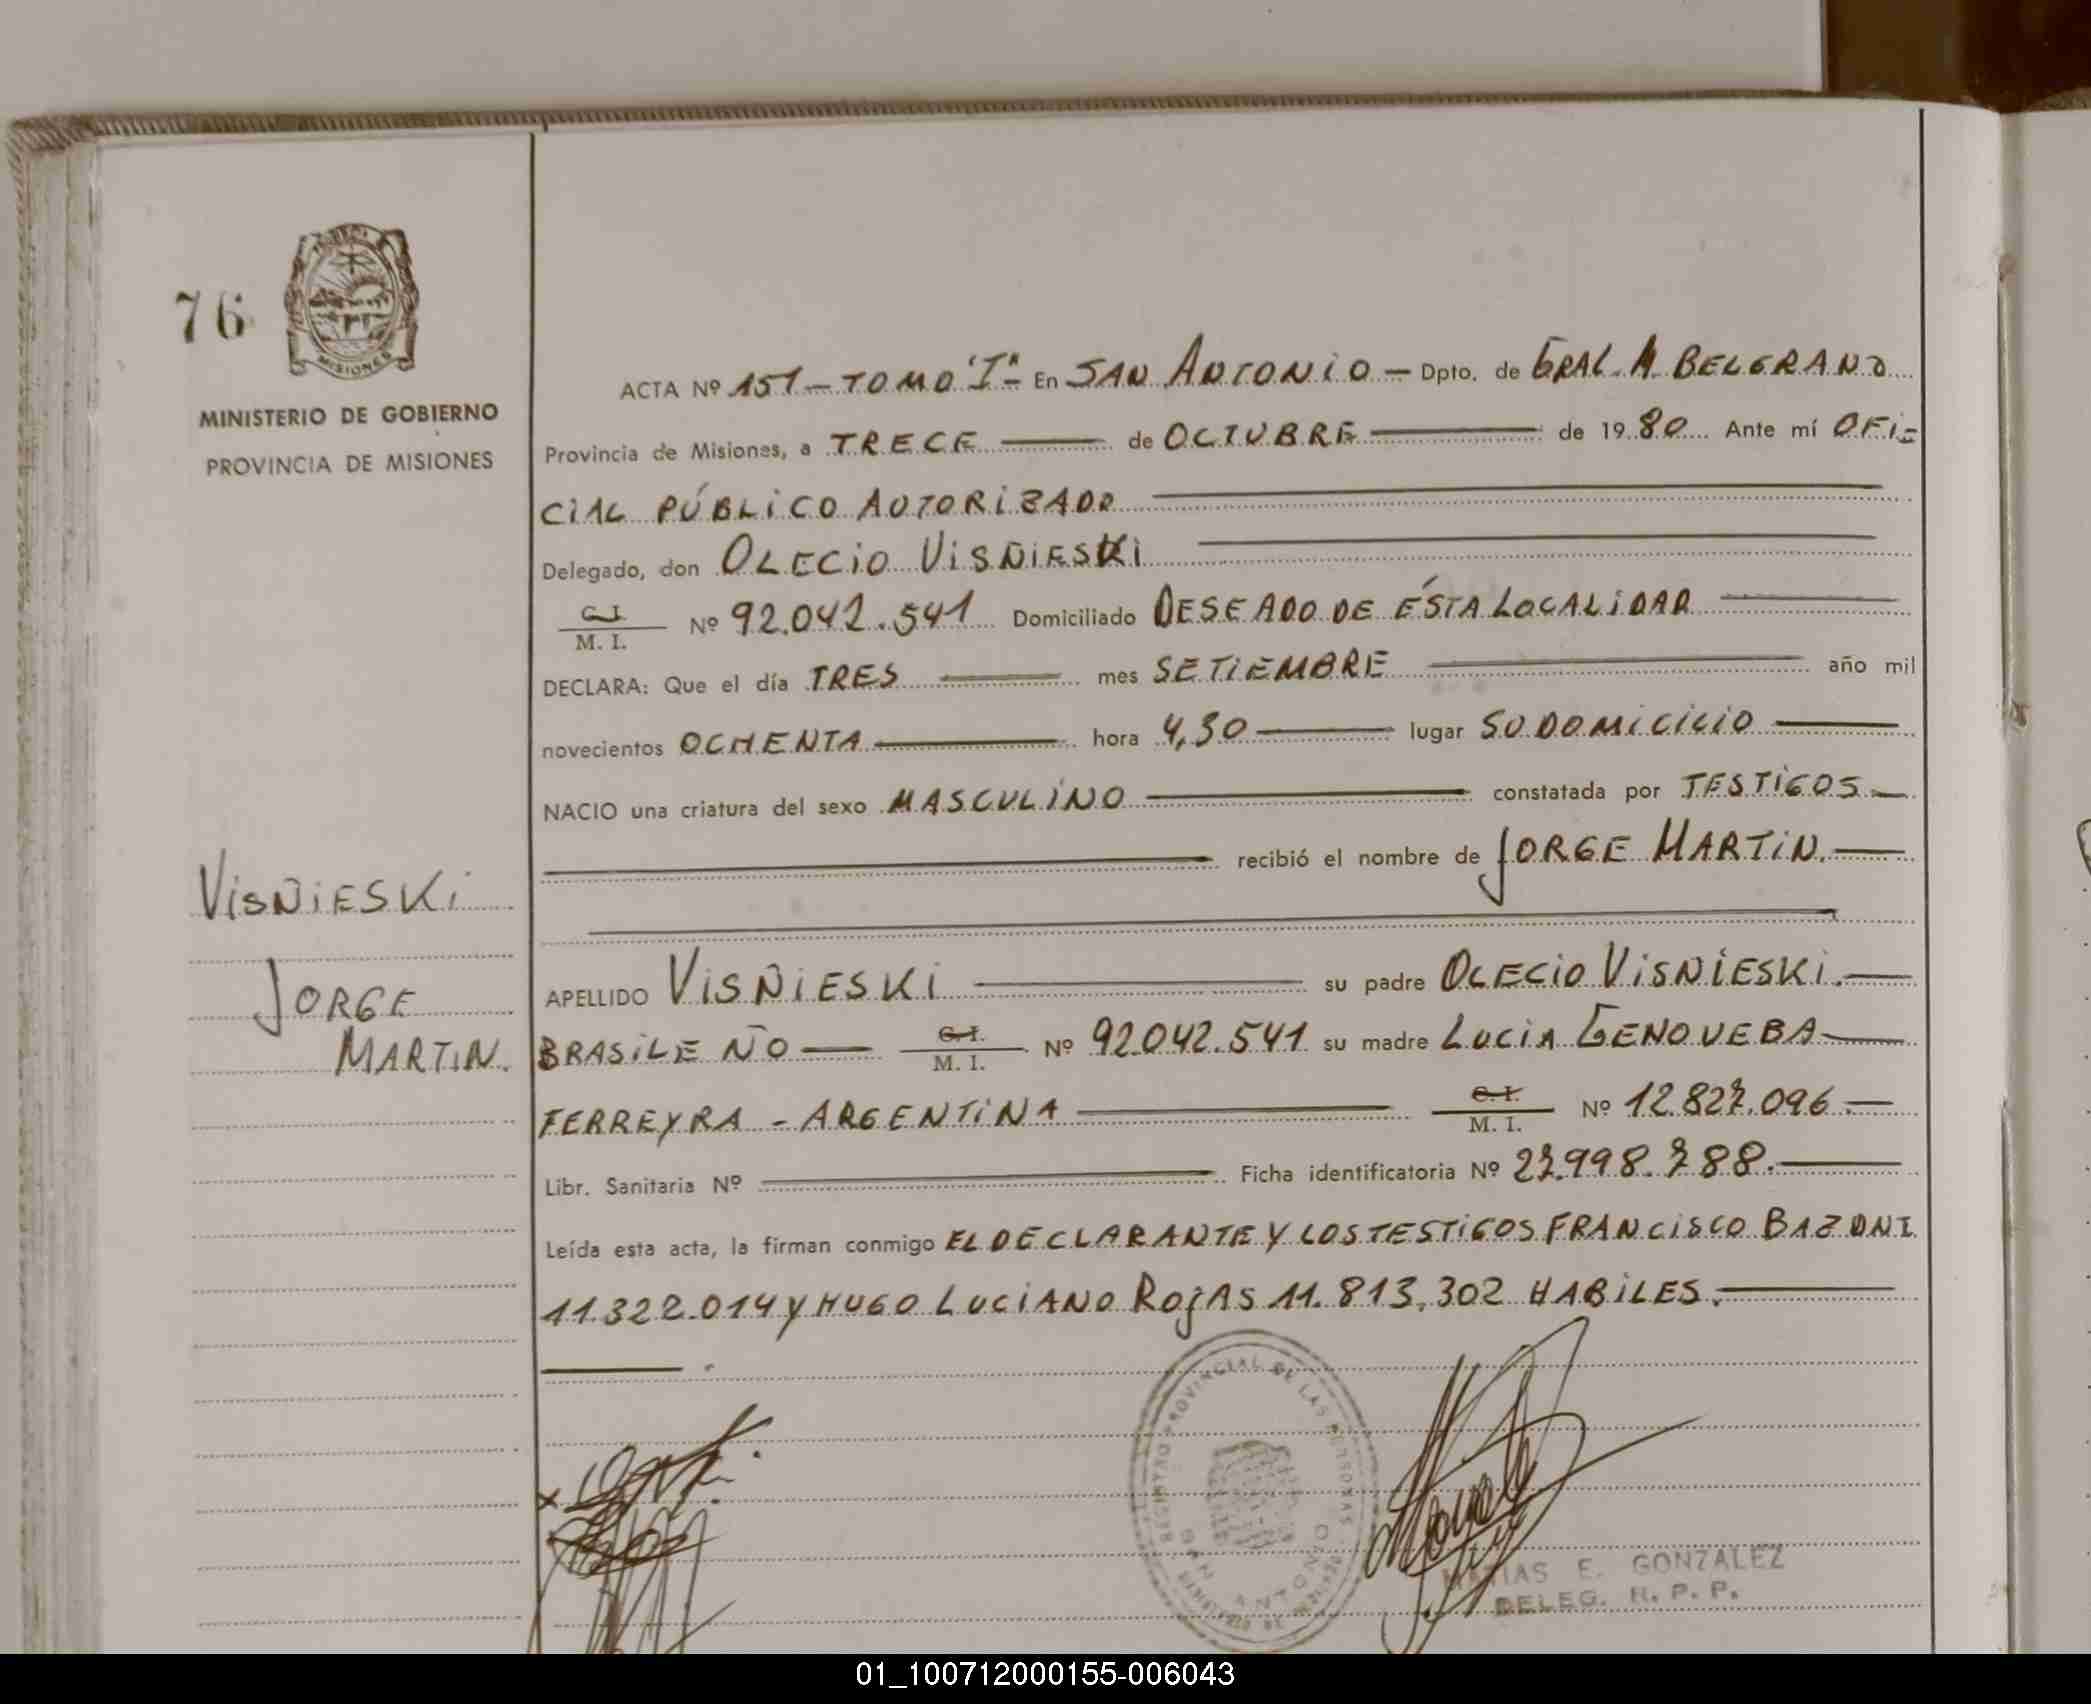 76
MISIONES
MINISTERIO DE GOBIERNO
PROVINCIA DE MISIONES
ACTA Nº 151 - TOMO "I" - En SAN ANTONIO - Dpto. de GRAL. M. BELGRANO
Provincia de Misiones, a TRECE de OCTUBRE de 1980 Ante mí OFI-
CIAL PÚBLICO AUTORIZADO
Delegado, don OLECIO VISÑIESKI
C. I.
M. I. Nº 92.042.541 Domiciliado DESEADO DE ÉSTA LOCALIDAD
DECLARA: Que el día TRES mes SETIEMBRE año mil
novecientos OCHENTA hora 4,30 lugar SU DOMICILIO
NACIO una criatura del sexo MASCULINO constatada por TESTIGOS
recibió el nombre de JORGE MARTIN.
VISÑIESKI
JORGE
MARTIN.
APELLIDO VISÑIESKI su padre OLECIO VISÑIESKI.
BRASILEÑO C. I.
M. I. Nº 92.042.541 su madre LUCIA GENOVEBA
FERREYRA - ARGENTINA C. I.
M. I. Nº 12.827.096.
Libr. Sanitaria Nº Ficha identificatoria Nº 27.998.788.
Leída esta acta, la firman conmigo EL DECLARANTE Y LOS TESTIGOS FRANCISCO BAZONI
11.322.014 y HUGO LUCIANO ROJAS 11.813.302 HABILES.
REGISTRO PROVINCIAL DE LAS PERSONAS
SAN ANTONIO
MATIAS E. GONZALEZ
DELEG. R. P. P.
01_100712000155-006043